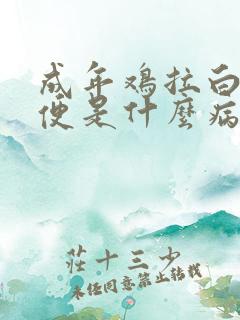 成年鸡拉白
便是什麽病
莊十三少
未经同意禁止转载